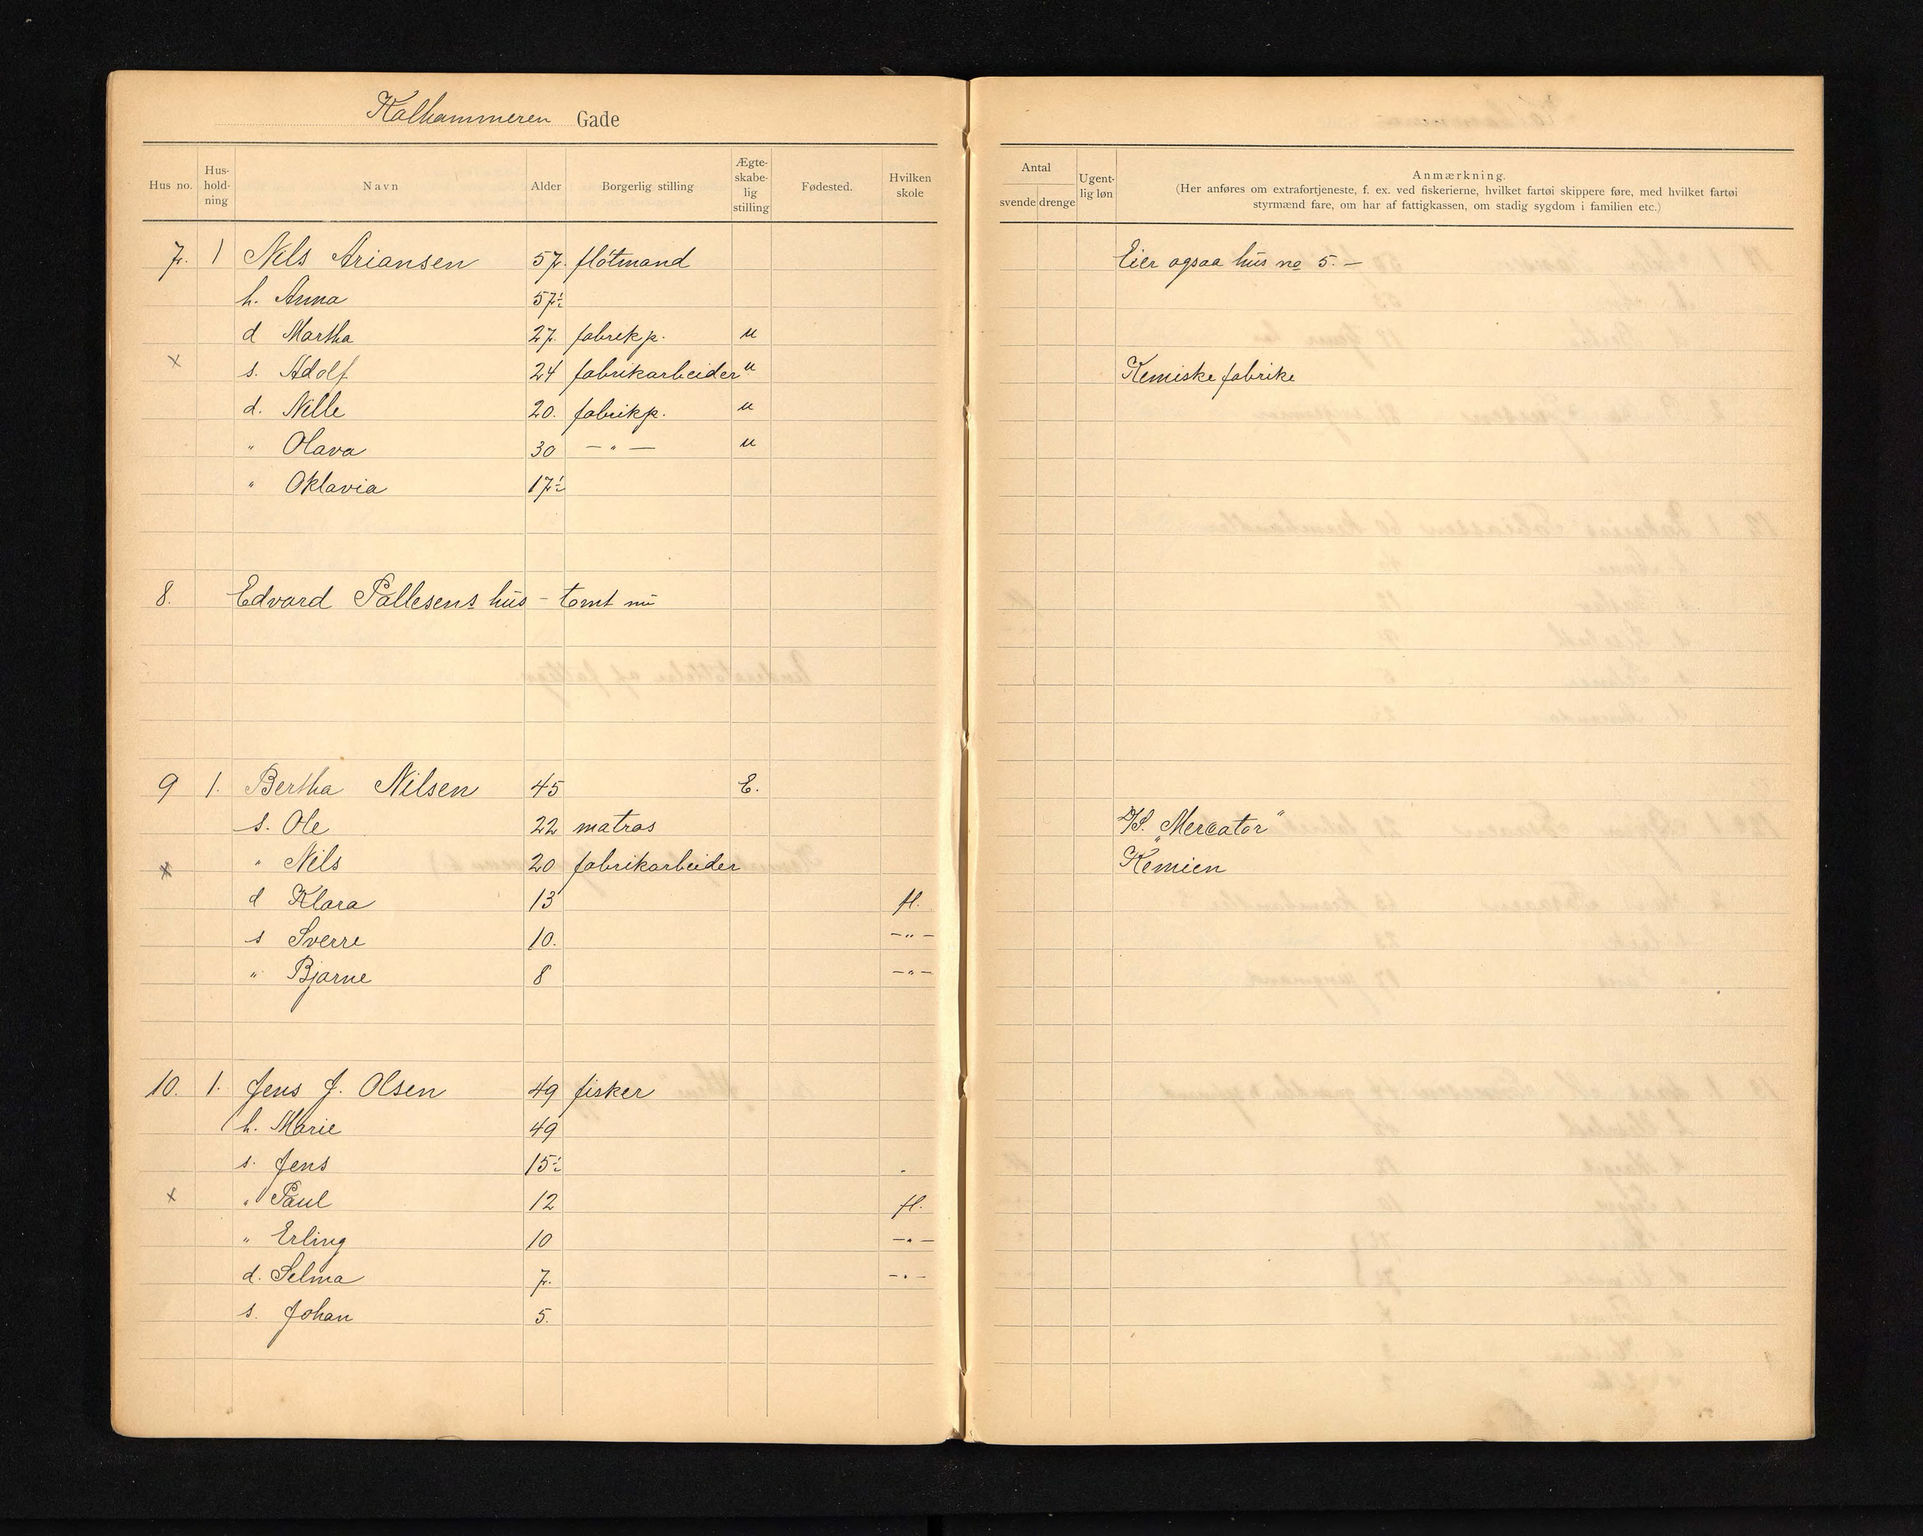 Kalhammeren Gade
Hus no. Hus-hold-ning Navn Alder Borgerlig stilling Ægte-skabe-lig stilling Fødested. Hvilken skole
Antal svende drenge Ugent-lig løn Anmærkning.
(Her anføres om extrafortjeneste, f. ex. ved fiskerierne, hvilket fartøi skippere føre, med hvilket fartøi
styrmænd fare, om har af fattigkassen, om stadig sygdom i familien etc.)
7. 1 Nils Ariansen 57. fløtmand Eier ogsaa hus no 5. —
h. Anna 57½
d Martha 27. fabrikp. u
x s. Adolf 24 fabrikarbeider u Kemiske fabrike
d. Nelle 20. fabrikp. u
" Olava 30 — " — u
" Oktavia 17½
8. Edvard Pallesens hus – tomt nu
9 1. Bertha Nilsen 45 E.
s. Ole 22 matros D/S. „Mercator"
x " Nils 20 fabrikarbeider Kemien
d Klara 13 fl.
s Sverre 10. — " —
" Bjarne 8 — " —
10. 1. Jens J. Olsen 49 fisker
h. Marie 49
s. Jens 15½
x " Paul 12 fl.
" Erling 10 — " —
d. Selma 7. — " —
s. Johan 5.